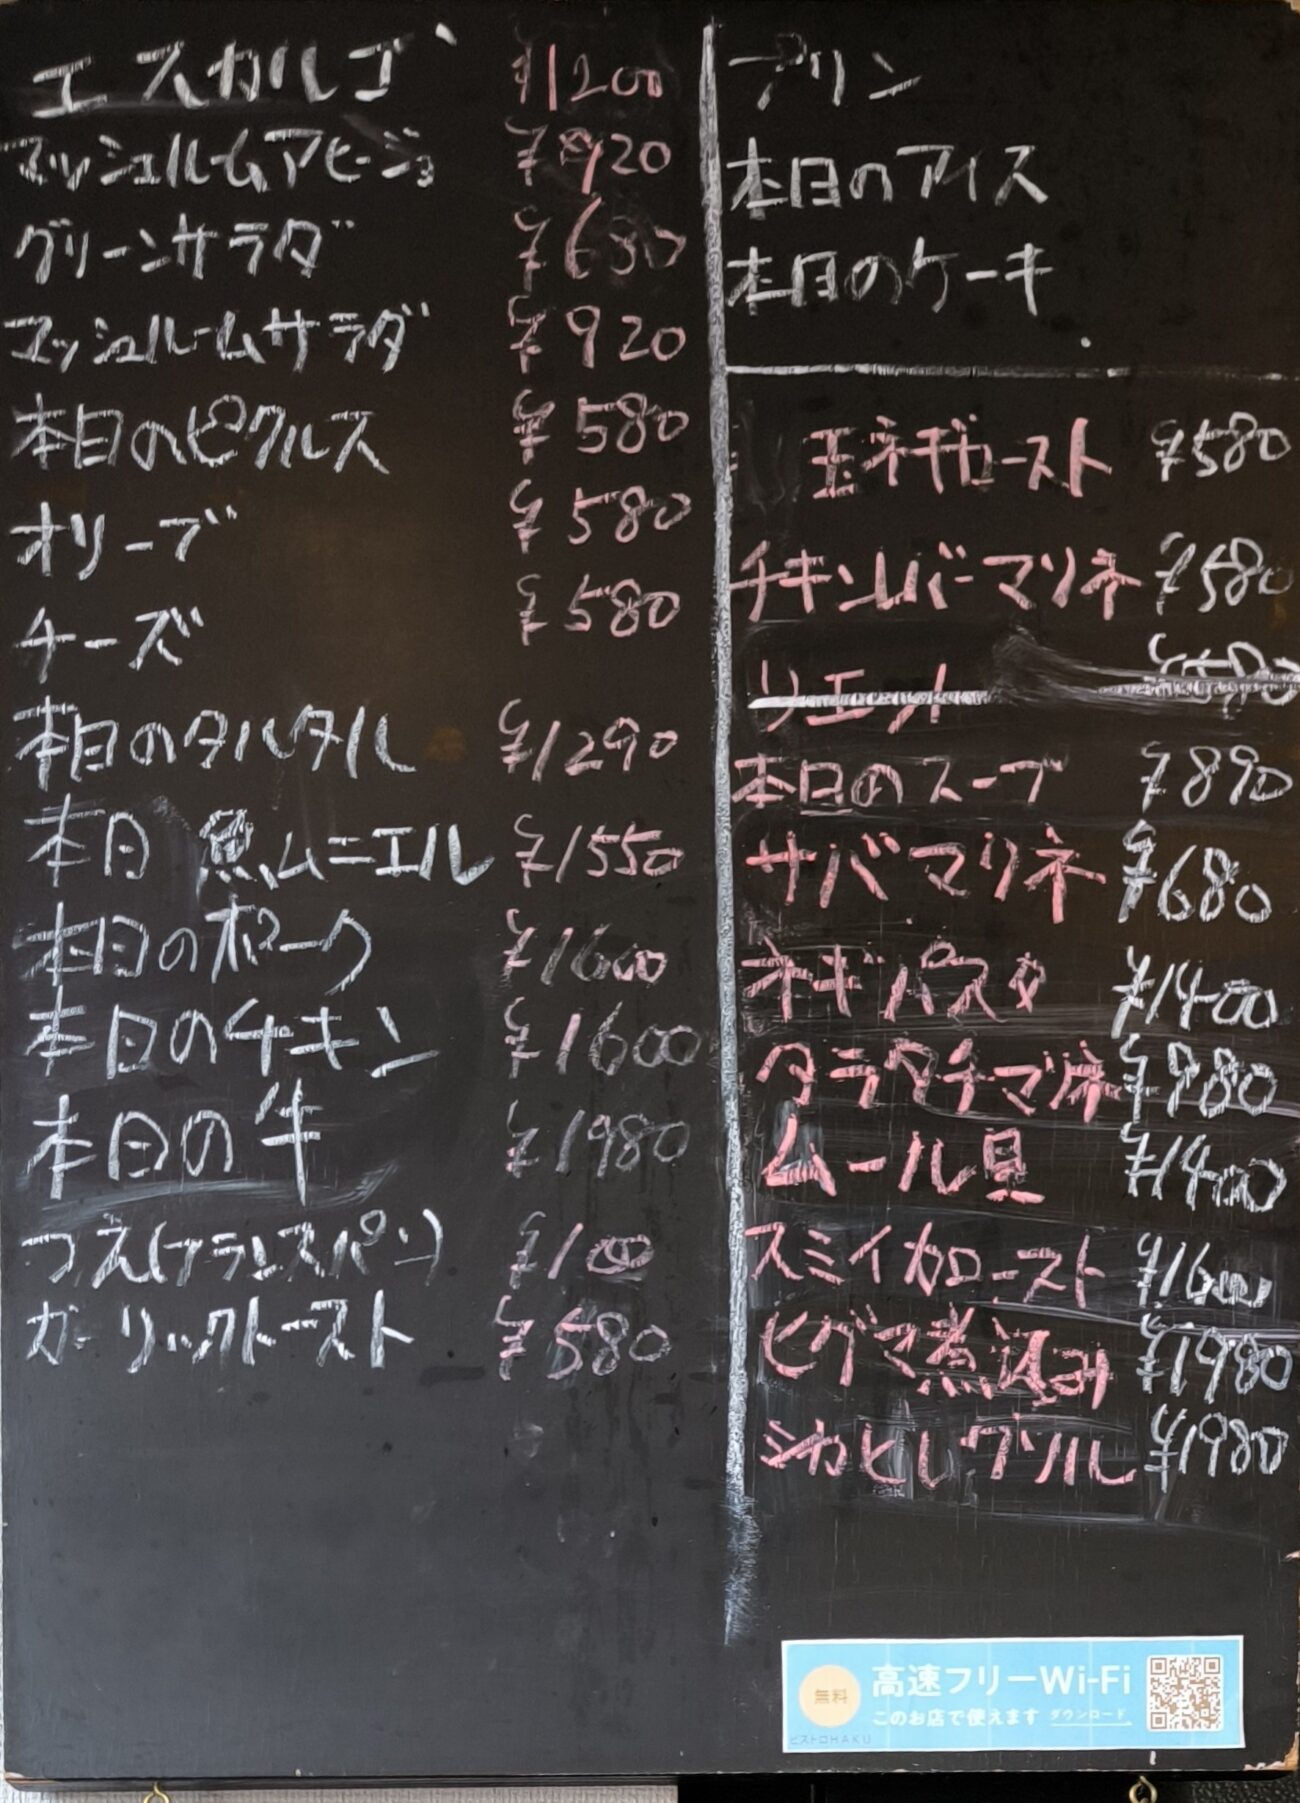 エスカルゴ ¥1200
マッシュルームアヒージョ ¥920
グリーンサラダ ¥680
マッシュルームサラダ ¥920
本日のピクルス ¥580
オリーブ ¥580
チーズ ¥580
本日のタルタル ¥1290
本日 魚ムニエル ¥1550
本日のポーク ¥1600
本日のチキン ¥1600
本日の牛 ¥1980
つえ(フランスパン) ¥100
ガーリックトースト ¥580
プリン
本日のアイス
本日のケーキ
玉ネギロースト ¥580
チキンレバーマリネ ¥580
リエット
本日のスープ ¥890
サバマリネ ¥680
ネギパスタ ¥1400
タラタチマリネ ¥980
ムール貝 ¥1400
スミイカロースト ¥1600
ヒグマ煮込み ¥1980
シカヒレグリル ¥1980
無料
高速フリーWi-Fi
このお店で使えます ダウンロード
ビストロHAKU